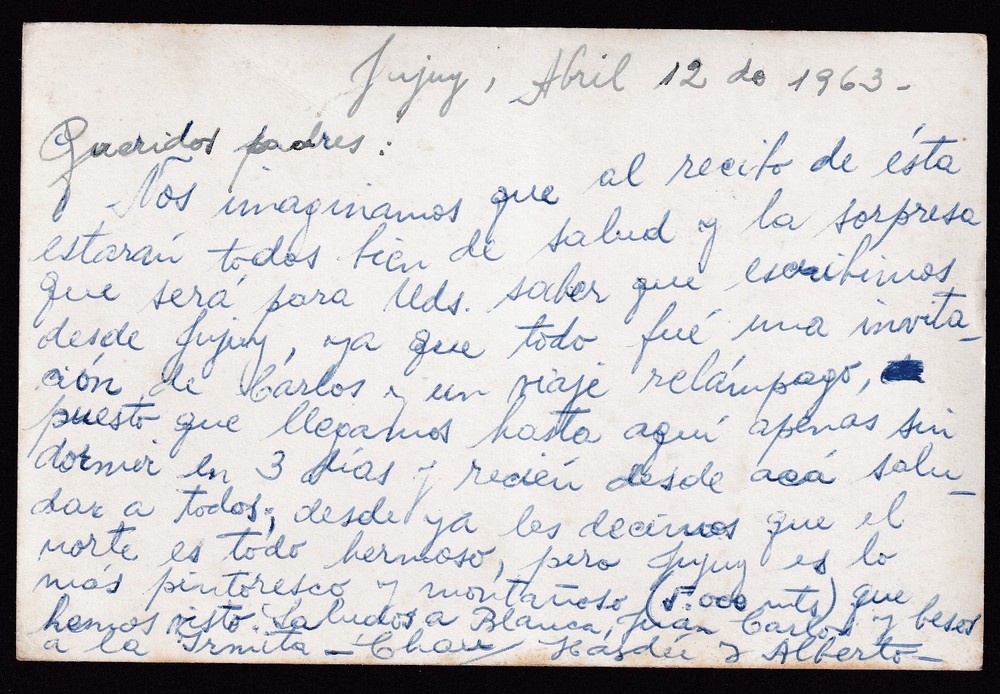 Jujuy, Abril 12 de 1963.-
Queridos padres:
Nos imaginamos que al recibo de ésta
estarán todos bien de salud y la sorpresa
que será para Uds. saber que escribimos
desde Jujuy, ya que todo fué una invita-
ción de Carlos y un viaje relámpago,
puesto que llegamos hasta aquí apenas sin
dormir en 3 días y recién desde acá salu-
dar a todos; desde ya les decimos que el
norte es todo hermoso, pero Jujuy es lo
más pintoresco y montañoso (5.000 mts) que
hemos visto. Saludos a Blanca, Juan Carlos y besos
a la Irmita - Chau y Alberto-